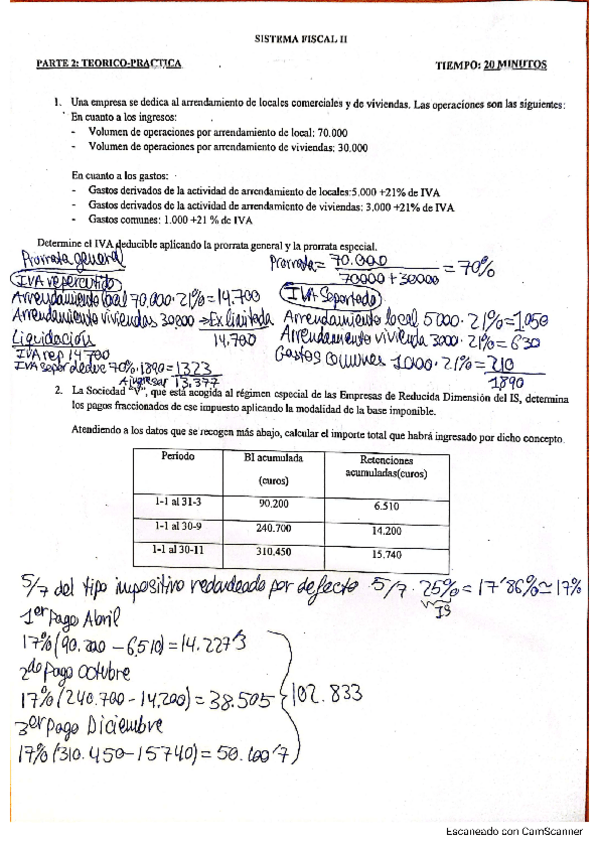 SISTEMA FISCAL II
PARTE 2: TEORICO-PRACTICA
TIEMPO: 20 MINUTOS
1. Una empresa se dedica al arrendamiento de locales comerciales y de viviendas. Las operaciones son las siguientes:
En cuanto a los ingresos:
- Volumen de operaciones por arrendamiento de local: 70.000
- Volumen de operaciones por arrendamiento de viviendas: 30.000
En cuanto a los gastos:
- Gastos derivados de la actividad de arrendamiento de locales:5.000 +21% de IVA
- Gastos derivados de la actividad de arrendamiento de viviendas: 3.000 +21% de IVA
- Gastos comunes: 1.000 +21 % de IVA
Determine el IVA deducible aplicando la prorrata general y la prorrata especial.
Prorrata general
Prorrata = 70.000 / 70000 + 30000 = 70%
IVA repercutido
Arrendamiento local 70.000 · 21% = 14.700
Arrendamiento viviendas 30000 → Ex limitada
14.700
IVA Soportado
Arrendamiento local 5000 · 21% = 1.050
Arrendamiento vivienda 3000 · 21% = 630
Gastos comunes 1000 · 21% = 210
1890
Liquidación
IVA rep 14700
IVA sopor deduce 70% · 1890 = 1323
A ingresar 13.377
2. La Sociedad "V", que está acogida al régimen especial de las Empresas de Reducida Dimensión del IS, determina
los pagos fraccionados de ese impuesto aplicando la modalidad de la base imponible.
Atendiendo a los datos que se recogen más abajo, calcular el importe total que habrá ingresado por dicho concepto.
Periodo | BI acumulada (euros) | Retenciones acumuladas(euros)
1-1 al 31-3 | 90.200 | 6.510
1-1 al 30-9 | 240.700 | 14.200
1-1 al 30-11 | 310.450 | 15.740
5/7 del tipo impositivo redondeado por defecto 5/7 · 25% = 17'86% ≃ 17%
IS
1er Pago Abril
17% (90.200 - 6.510) = 14.227'3
2do Pago Octubre
17% (240.700 - 14.200) = 38.505
102.833
3er Pago Diciembre
17% (310.450 - 15740) = 50.100'7
Escaneado con CamScanner